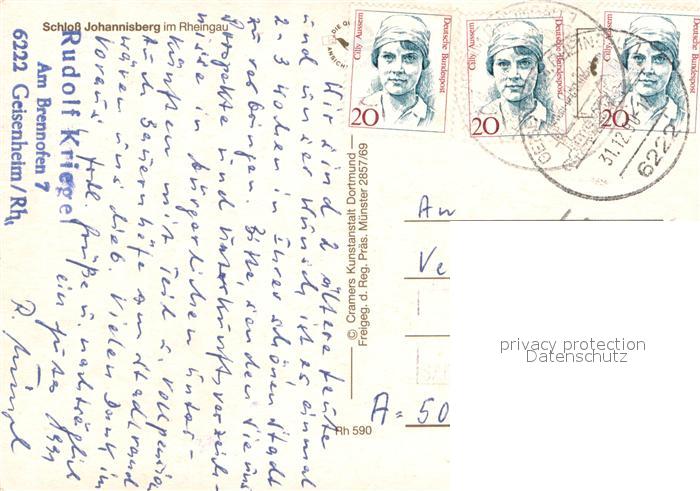 Schloß Johannisberg im Rheingau
Rudolf Kriegel
Am Brennofen 7
6222 Geisenheim/Rh.
Wir sind 2 ältere Leute
und unser Wunsch ist es einmal
2-3 Wochen in Ihrer schönen Stadt
zu verbringen. Bitte, senden Sie uns
Prospekte und Unterkunftsverzeich-
nisse in bürgerlichen Unter-
künften mit Teil u. Vollpension
Auch Bauernhöfe am Stadtrand
wären uns lieb. Vielen Dank im
Voraus frdl. Grüße u. nachträglich
ein gutes 1991
R. Kriegel
© Cramers Kunstanstalt Dortmund
Freigeg. d. Reg. Präs. Münster 2857/69
Rh 590
Cilly Aussem
Deutsche Bundespost
20
Cilly Aussem
Deutsche Bundespost
20
Cilly Aussem
Deutsche Bundespost
20
31.12.90
6222
An
Ve
A=50
privacy protection
Datenschutz